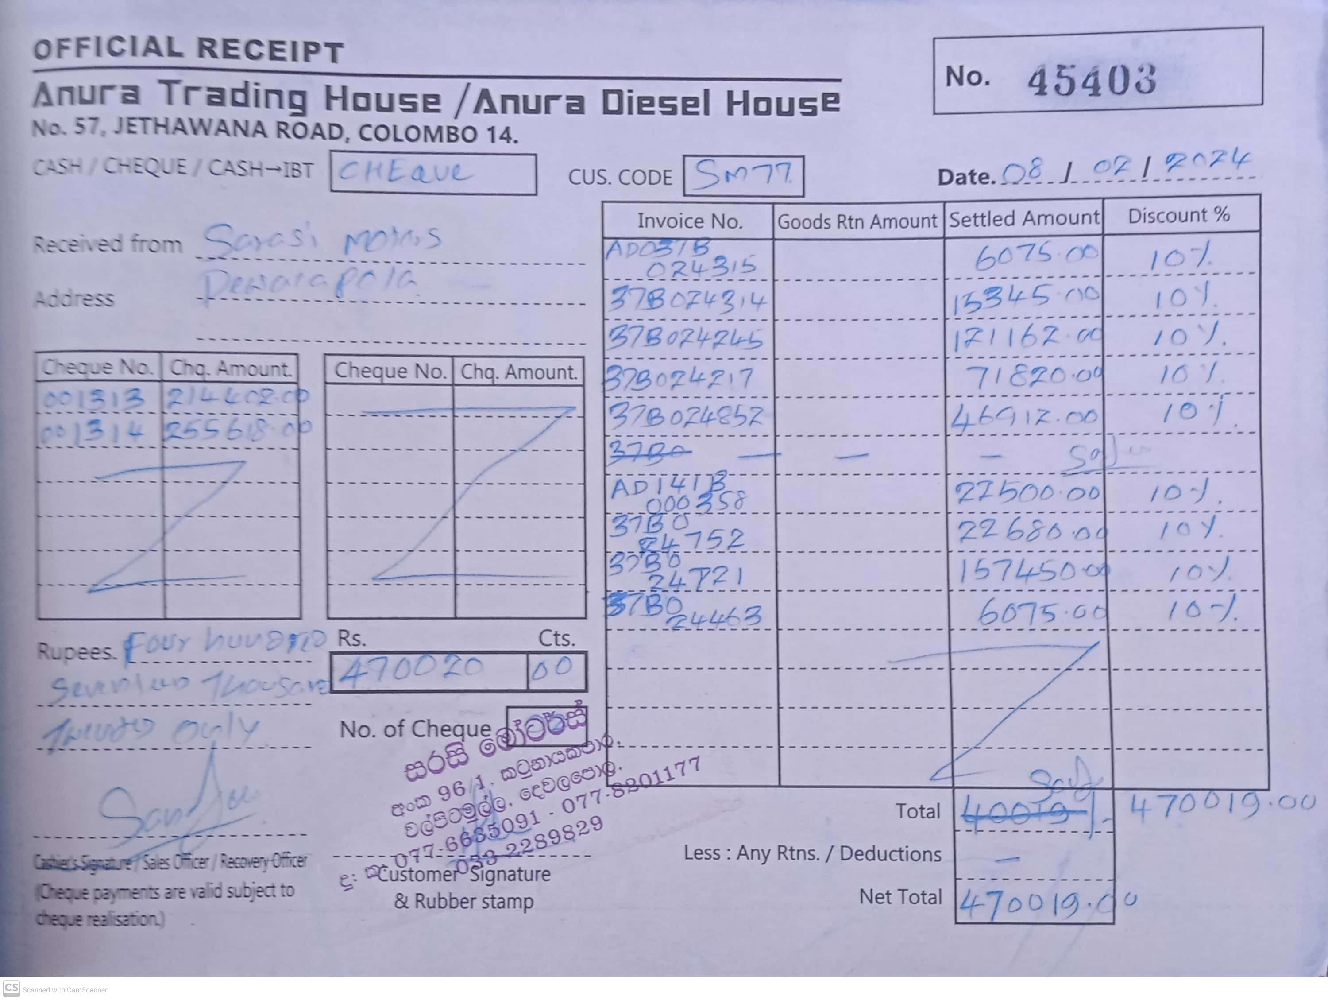 OFFICIAL RECEIPT
No. 45403
Anura Trading House / Anura Diesel House
No. 57, JETHAWANA ROAD, COLOMBO 14.
CASH / CHEQUE / CASH→IBT CHEQUE CUS. CODE SM77 Date. 08 / 02 / 2024
Received from Sarasi motors
Address Dewalapola
Invoice No. Goods Rtn Amount Settled Amount Discount %
AD037B 024315 6075.00 10%
37B024314 15345.00 10%
37B024245 121162.00 10%
37B024217 71820.00 10%
37B024852 46912.00 10%
37B0 — — —
AD141B 000358 22500.00 10%
37B0 24752 22680.00 10%
37B0 24721 157450.00 10%
37B0 24463 6075.00 10%
Cheque No. Chq. Amount. Cheque No. Chq. Amount.
001313 214402.00
001314 255618.00
Rupees. Four hundred Rs. Cts.
Thousand 470020 00
Twenty Only
No. of Cheque
සරසි මෝටර්ස්
අංක 96/1,
දෙවලපොල.
077-6635091 - 077-8201177
033-2289829
Total 40019/- 470019.00
Less : Any Rtns. / Deductions —
Net Total 470019.00
Cashier's Signature / Sales Officer / Recovery Officer
(Cheque payments are valid subject to
cheque realisation.)
Customer Signature
& Rubber stamp
CS Scanned with CamScanner